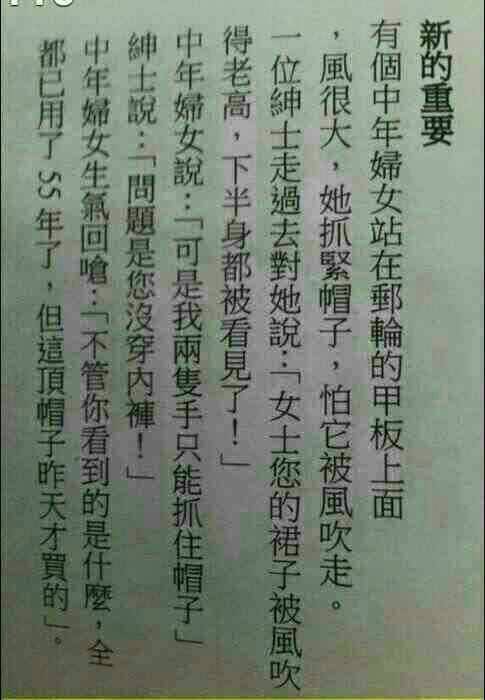 新的重要
有個中年婦女站在郵輪的甲板上面
，風很大，她抓緊帽子，怕它被風吹走。
一位紳士走過去對她說：「女士您的裙子被風吹
得老高，下半身都被看見了！」
中年婦女說：「可是我兩隻手只能抓住帽子」
紳士說：「問題是您沒穿內褲！」
中年婦女生氣回嗆：「不管你看到的是什麼，全
都已用了55年了，但這頂帽子昨天才買的」。